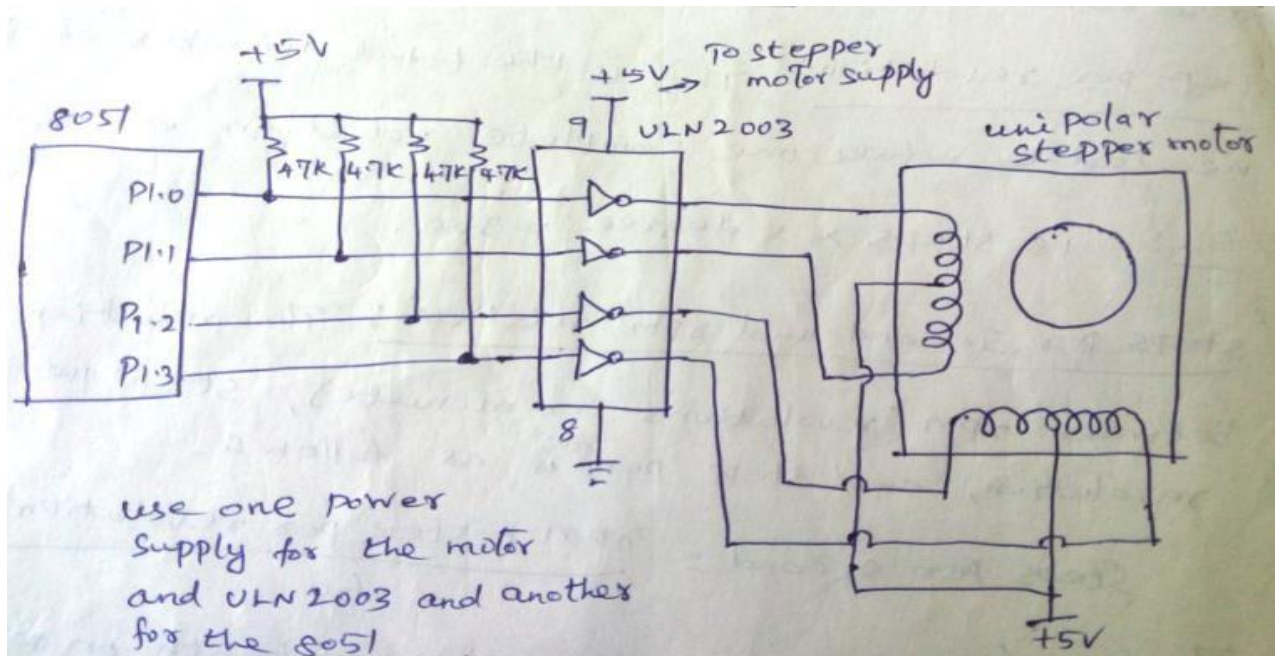 +5V
To stepper
+5V → motor supply
8051
9
ULN 2003
unipolar
stepper motor
4.7K 4.7K 4.7K 4.7K
P1.0
P1.1
P1.2
P1.3
8
use one power
supply for the motor
and ULN2003 and another
for the 8051
+5V